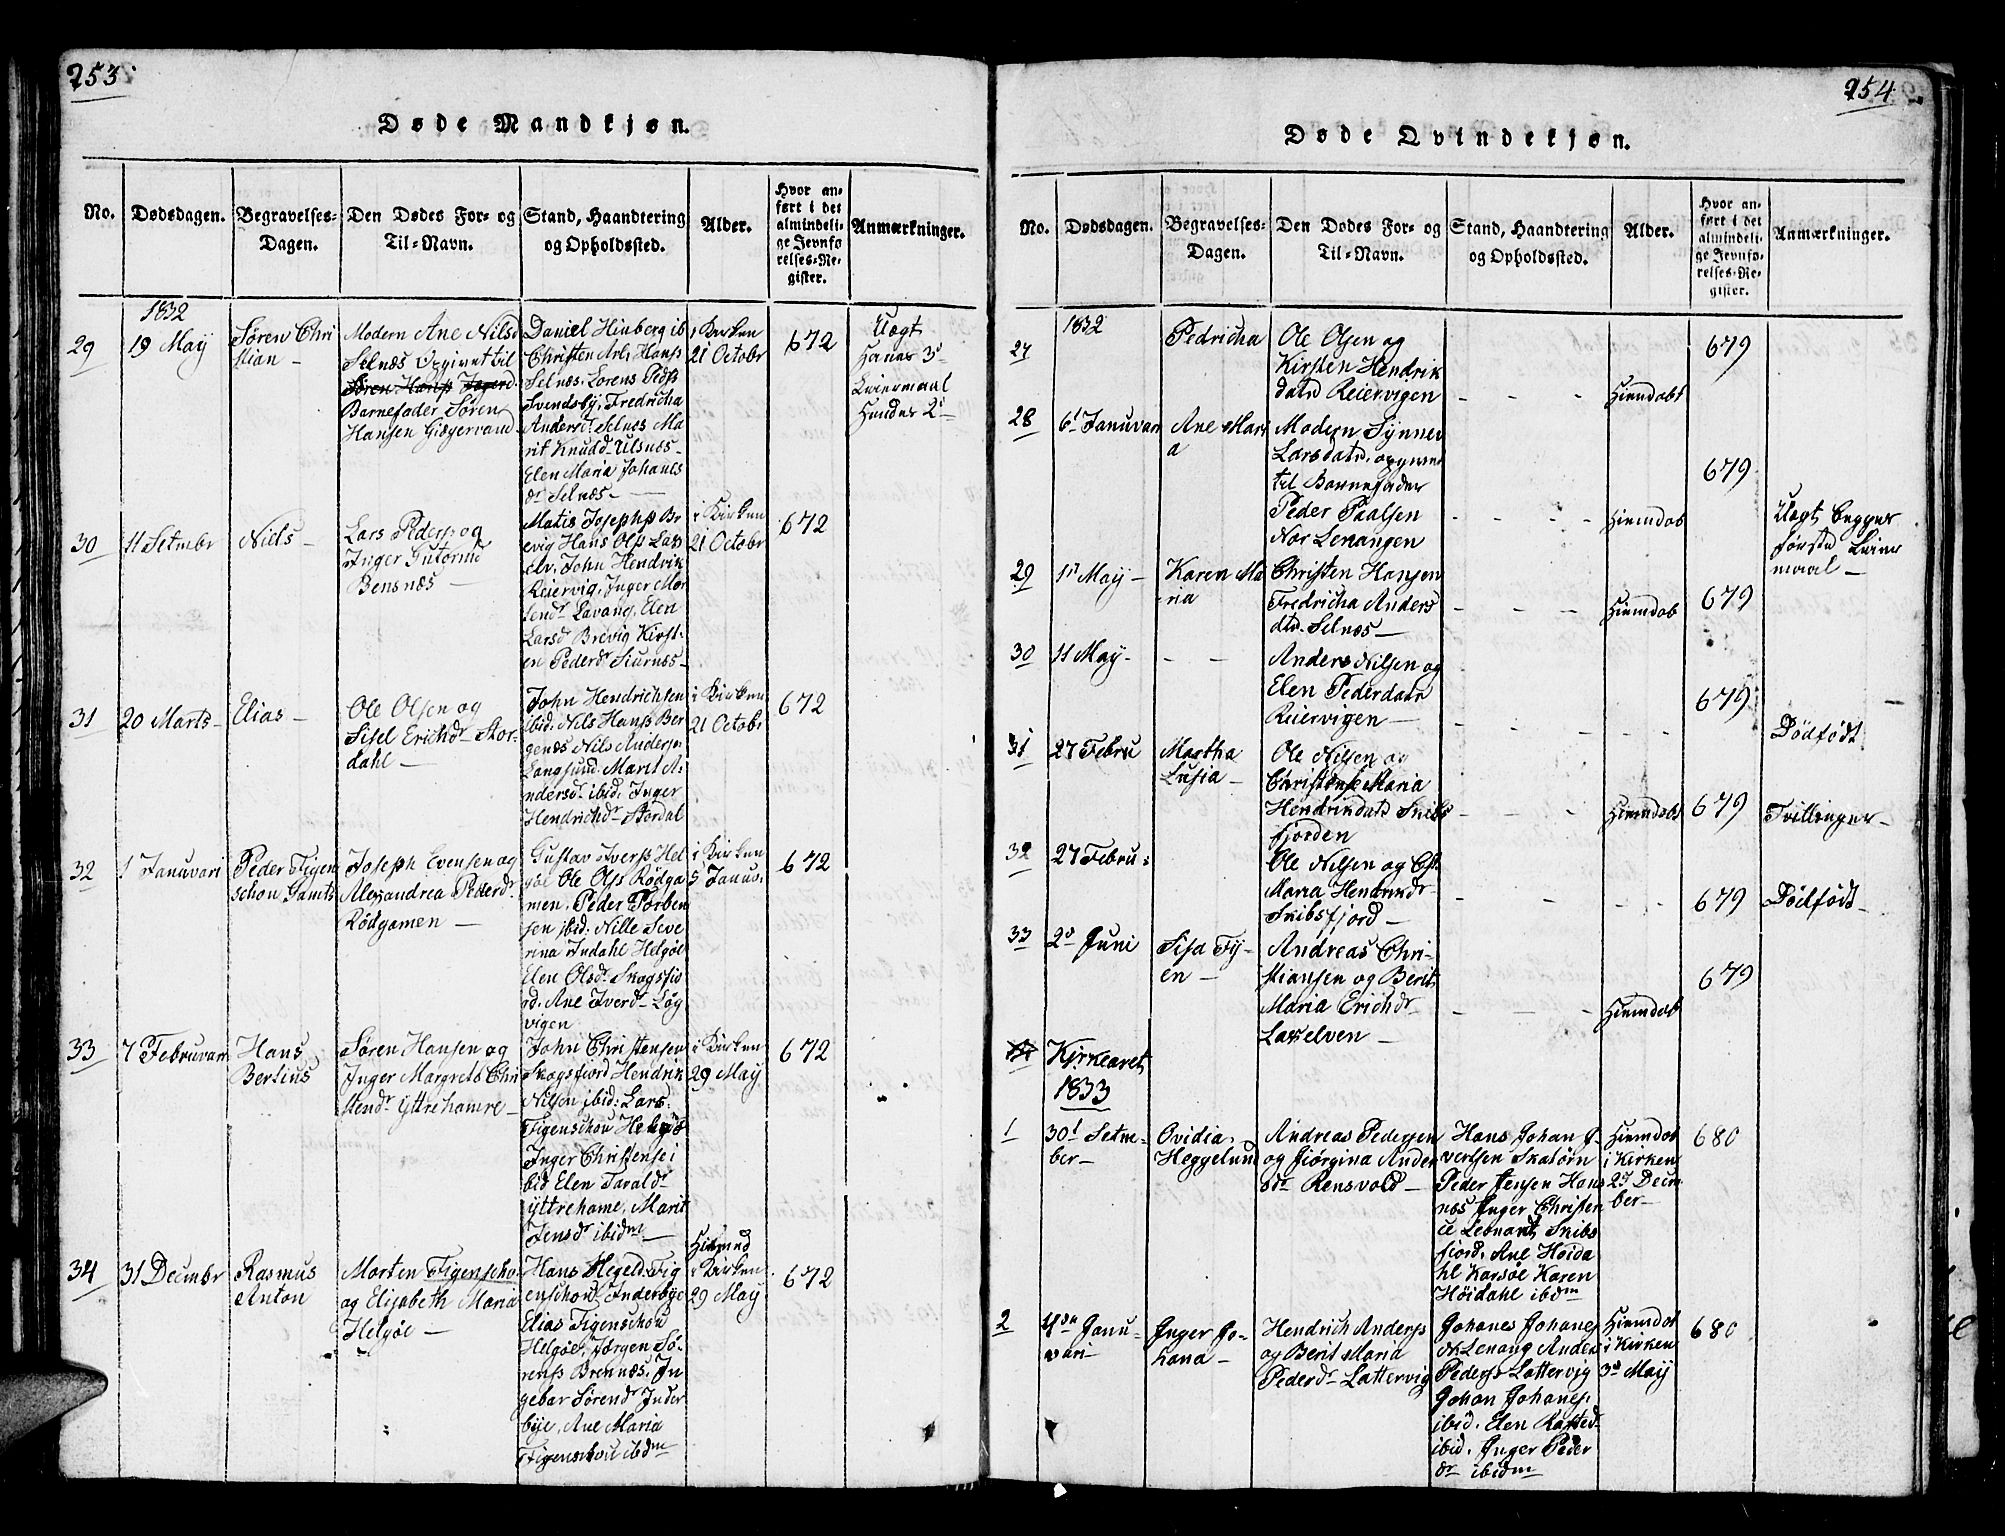 253.
Døde Mandkjøn.
No.
Dødsdagen.
Begravelses-
Dagen.
Den Dødes For- og
Til-Navn.
Stand, Haandtering
og Opholdssted.
Alder.
Hvor an-
ført i det
almindeli-
ge Jevnfø
relses-Re-
gister.
Anmærkninger.
1832
29
19 May
Søren Chri
stian -
Modern Ane Nilsd
Selnæs Opgivet til
Søren Hanss
Barnefader Søren
Hansen Giøgervand
Daniel Hinberg ib
Christen Arl, Hanss
Selnæs. Lorens Pedss
Svendsby, Fredricha
Andersd. Selnæs Ma
rit Knudd. Ulsnæs-
Elen Maria Johanes
dr Selnæs. -
i Kirken
21 Octobr
672
Uægt
Hanes 3d
Leiermaal
Hendes 2d
30
11 Setmbr
Niels -
Lars Pederss og
Inger Gutormd
Bensnæs -
Matis Josephss Br
evig Hans Olss Lax
elv. John Hendrik
Reiervig, Inger Mor
tendr Lavang, Elen
Larsd Brevig Kirst-
en Pederdr Siurnæs-
i Kirken
21 Octobr
672
31
20 Marts-
Elias -
Ole Olsen og
Sisel Erichdr Stor-
dahl -
John Hendrichsen
ibid. Nils Hanss Ber
genæs Nils Anders
Langsund. Marit A-
ndersdr ibid. Inger
Hendrichdr Stordal
i Kirken
21 Octobr
672
32
1 Januvari
Peder Figen
schou Gamts
Joseph Evensen og
Alexandrea Pederdr
Rödgamen -
Gustav Iverss Hel
göe Ole Olss Rødga
men. Peder Torben
sen ibid. Nille Seve
rina Indahl Helgöe
Elen Olsdr Skogsfio
rd. Ane Iverd- Løg
vigen
i Kirken
5 Januv.
672
33
7 Februvari
Hans
Bertius
Søren Hansen og
Inger Margrete Chri
stendr Yttrehamre-
John Christensen
Skogsfjord Hendrik
Nilsen ibid: Lars
Figenschou Helgöe
Inger Christense i
bid Elen Taraldr
yttrehame, Marit
Jensdr ibidm -
i Kirken
29 May
672
34
31 Decmbr
Rasmus
Anton
Morten Figenscho.
og Elisabeth Maria
Helgöe -
Hans Hegeld. Fig
enschou Inderbye
Elias Figenschou
Helgöe, Jørgen Sö-
renss Brennæs. In
gebar Sörendr Inder
bye, Ane Maria
Figenschou ibdm
i Kirken
29 May
672
254
Døde Qvindekjøn.
No.
Dødsdagen.
Begravelses-
Dagen.
Den Dødes For- og
Til-Navn.
Stand, Haandtering
og Opholdssted.
Alder.
Hvor an-
ført i det
almindeli-
ge Jevnfø-
relses-Re-
gister.
Anmærkninger.
1832
27
Pedricha
Ole Olsen og
Kirsten Hendrik
datr Reiervigen
Hiemdøbt
679
28
6t Januvari
Ane Mari
a
Modern Synnev
Larsdatr. opgivend
til Barnefader
Peder Paalsen
Nor Lenangen
Hiemdøb
679
Uægt begges
første Leier
maal -
29
1st May -
Karen Ma
-ria
Christen Hansen
Fredricha Anders
dtr. Selnæs -
Hiemdøb
679
30
11 May-
Anders Nilsen og
Elen Pederdatr
Reiervigen -
679
Dödfödt
31
27 Febru
Martha
Lusia -
Ole Nilsen og
Christense Maria
Hendrikdatr Skibs
fjorden
Hiemdøbt
679
Tvillinger-
32
27 Febru-
Ole Nilsen og Chst.
Maria Hendrikdr
Skibsfjord -
679
Dödfödt-
33
2d Juni
Sisa Fy-
en -
Andreas Chri-
stiansen og Berit
Maria Erichdr
Laxelven -
Hiemdøb
679
Kirkeaaret
1833
1
30t Setm-
ber-
Ovidia
Heggelund
Andreas Pedersen
og Jiörgina Ander
sdr Rensvold -
Hans Johan J-
vertsen Skatörn
Peder Jensen Hans
næs Inger Christen
ce Leonard, Skibs
fjord, Ane Höida
hl Karsöe Karen
Höidahl ibdm
Hiemdøbt
i Kirken
2d Decm
ber-
680
2
4de Janu-
vari
Inger Jo-
hana -
Hendrich Anderss
og Berit Maria
Pederdr Lattervig
Johanes Johanes
dr Lenang Ander
Pederss Lattervig
Johan Johaness
ibid. Elen
ibid. Inger Peder
dr ibidm
Hiemdøbt
i Kirken
3d Maij
680